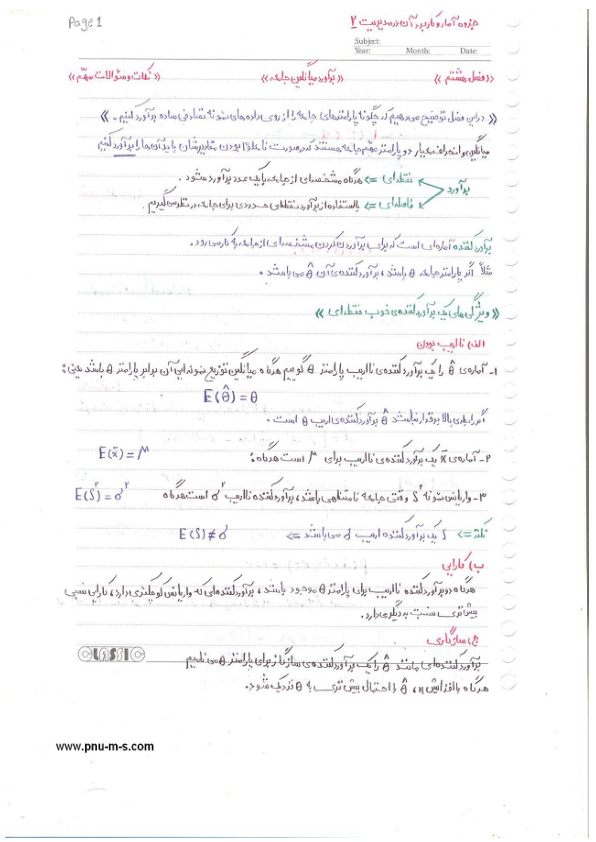 Page 1
جزوه آمار و کاربرد آن در مدیریت ۲
Subject:
Year: Month: Date:
«فصل هشتم» «برآورد میانگین جامعه» «نکات و سئوالات مهم»
« در این فصل توضیح می‌دهیم که چگونه پارامترهای جامعه را از روی داده‌های نمونه تصادفی ساده برآورد کنیم. »
میانگین و انحراف معیار دو پارامتر مهم جامعه هستند که در صورت نامعلوم بودن مقادیرشان باید آن‌ها را برآورد کنیم
نقطه‌ای <= هرگاه مشخصه‌ای از جامعه با یک عدد برآورد شود.
برآورد
فاصله‌ای <= با استفاده از برآورد نقطه‌ای حدودی برای جامعه در نظر می‌گیریم.
برآورد کننده آماره‌ای است که برای برآورد کردن مشخصه‌ای از جامعه به کار می‌رود.
مثلاً اگر پارامتر جامعه θ باشد، برآورد کننده‌ی آن θ̂ می‌باشد.
« ویژگی‌های یک برآورد کننده‌ی خوب نقطه‌ای »
الف) نااریب بودن
۱- آماره‌ی θ̂ را یک برآورد کننده‌ی نااریب پارامتر θ گوییم هرگاه میانگین توزیع نمونه‌ایی آن برابر پارامتر θ باشد یعنی:
E(θ̂) = θ
اگر رابطه‌ی بالا برقرار نباشد θ̂ برآورد کننده‌ی اریب θ است.
۲- آماره‌ی x̄ یک برآورد کننده‌ی نااریب برای μ است هرگاه: E(x̄) = μ
۳- واریانس نمونه S² وقتی جامعه نامتناهی باشد، برآورد کننده نااریب σ² است هرگاه E(S²) = σ²
نکته <= S یک برآورد کننده اریب σ می‌باشد <= E(S) ≠ σ
ب) کارایی
هرگاه دو برآورد کننده نااریب برای پارامتر θ موجود باشند، برآورد کننده‌ای که واریانس کوچکتری دارد، کارایی نسبی
بیش‌تری نسبت به دیگری دارد.
ج) سازگاری
CLASSIC
برآورد کننده‌ای مانند θ̂ را یک برآورد کننده‌ی سازگار برای پارامتر θ می‌نامیم
هرگاه با افزایش n، θ̂ با احتمال بیش‌تری به θ نزدیک شود.
www.pnu-m-s.com